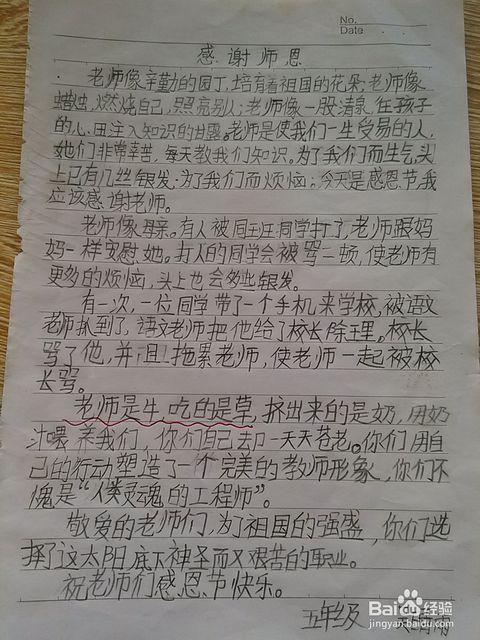 No.
Date
感谢师恩
老师像辛勤的园丁,培育着祖国的花朵;老师像
蜡烛,燃烧自己,照亮别人;老师像一股清泉,在孩子
的心田注入知识的甘露。老师是使我们一生受易的人,
她们非常辛苦,每天教我们知识。为了我们而生气,头
上已有几丝银发;为了我们而烦恼。今天是感恩节,我
应该感谢老师。
老师像母亲。有人被同班同学打了,老师跟妈
妈一样安慰她。打人的同学会被骂一顿,使老师有
更多的烦恼,头上也会多些银发。
有一次,一位同学带了一个手机来学校,被语文
老师抓到了,语文老师把他给了校长处理。校长
骂了他,并且拖累老师,使老师一起被校
长骂。
老师是牛,吃的是草,挤出来的是奶,用奶
汁喂养我们,你们自己却一天天苍老。你们用自
己的行动塑造了一个完美的教师形象,你们不
愧是“人类灵魂的工程师”。
敬爱的老师们,为了祖国的强盛,你们选
择了这太阳底下神圣而又艰苦的职业。
祝老师们感恩节快乐。
五年级
Baidu经验
jingyan.baidu.com